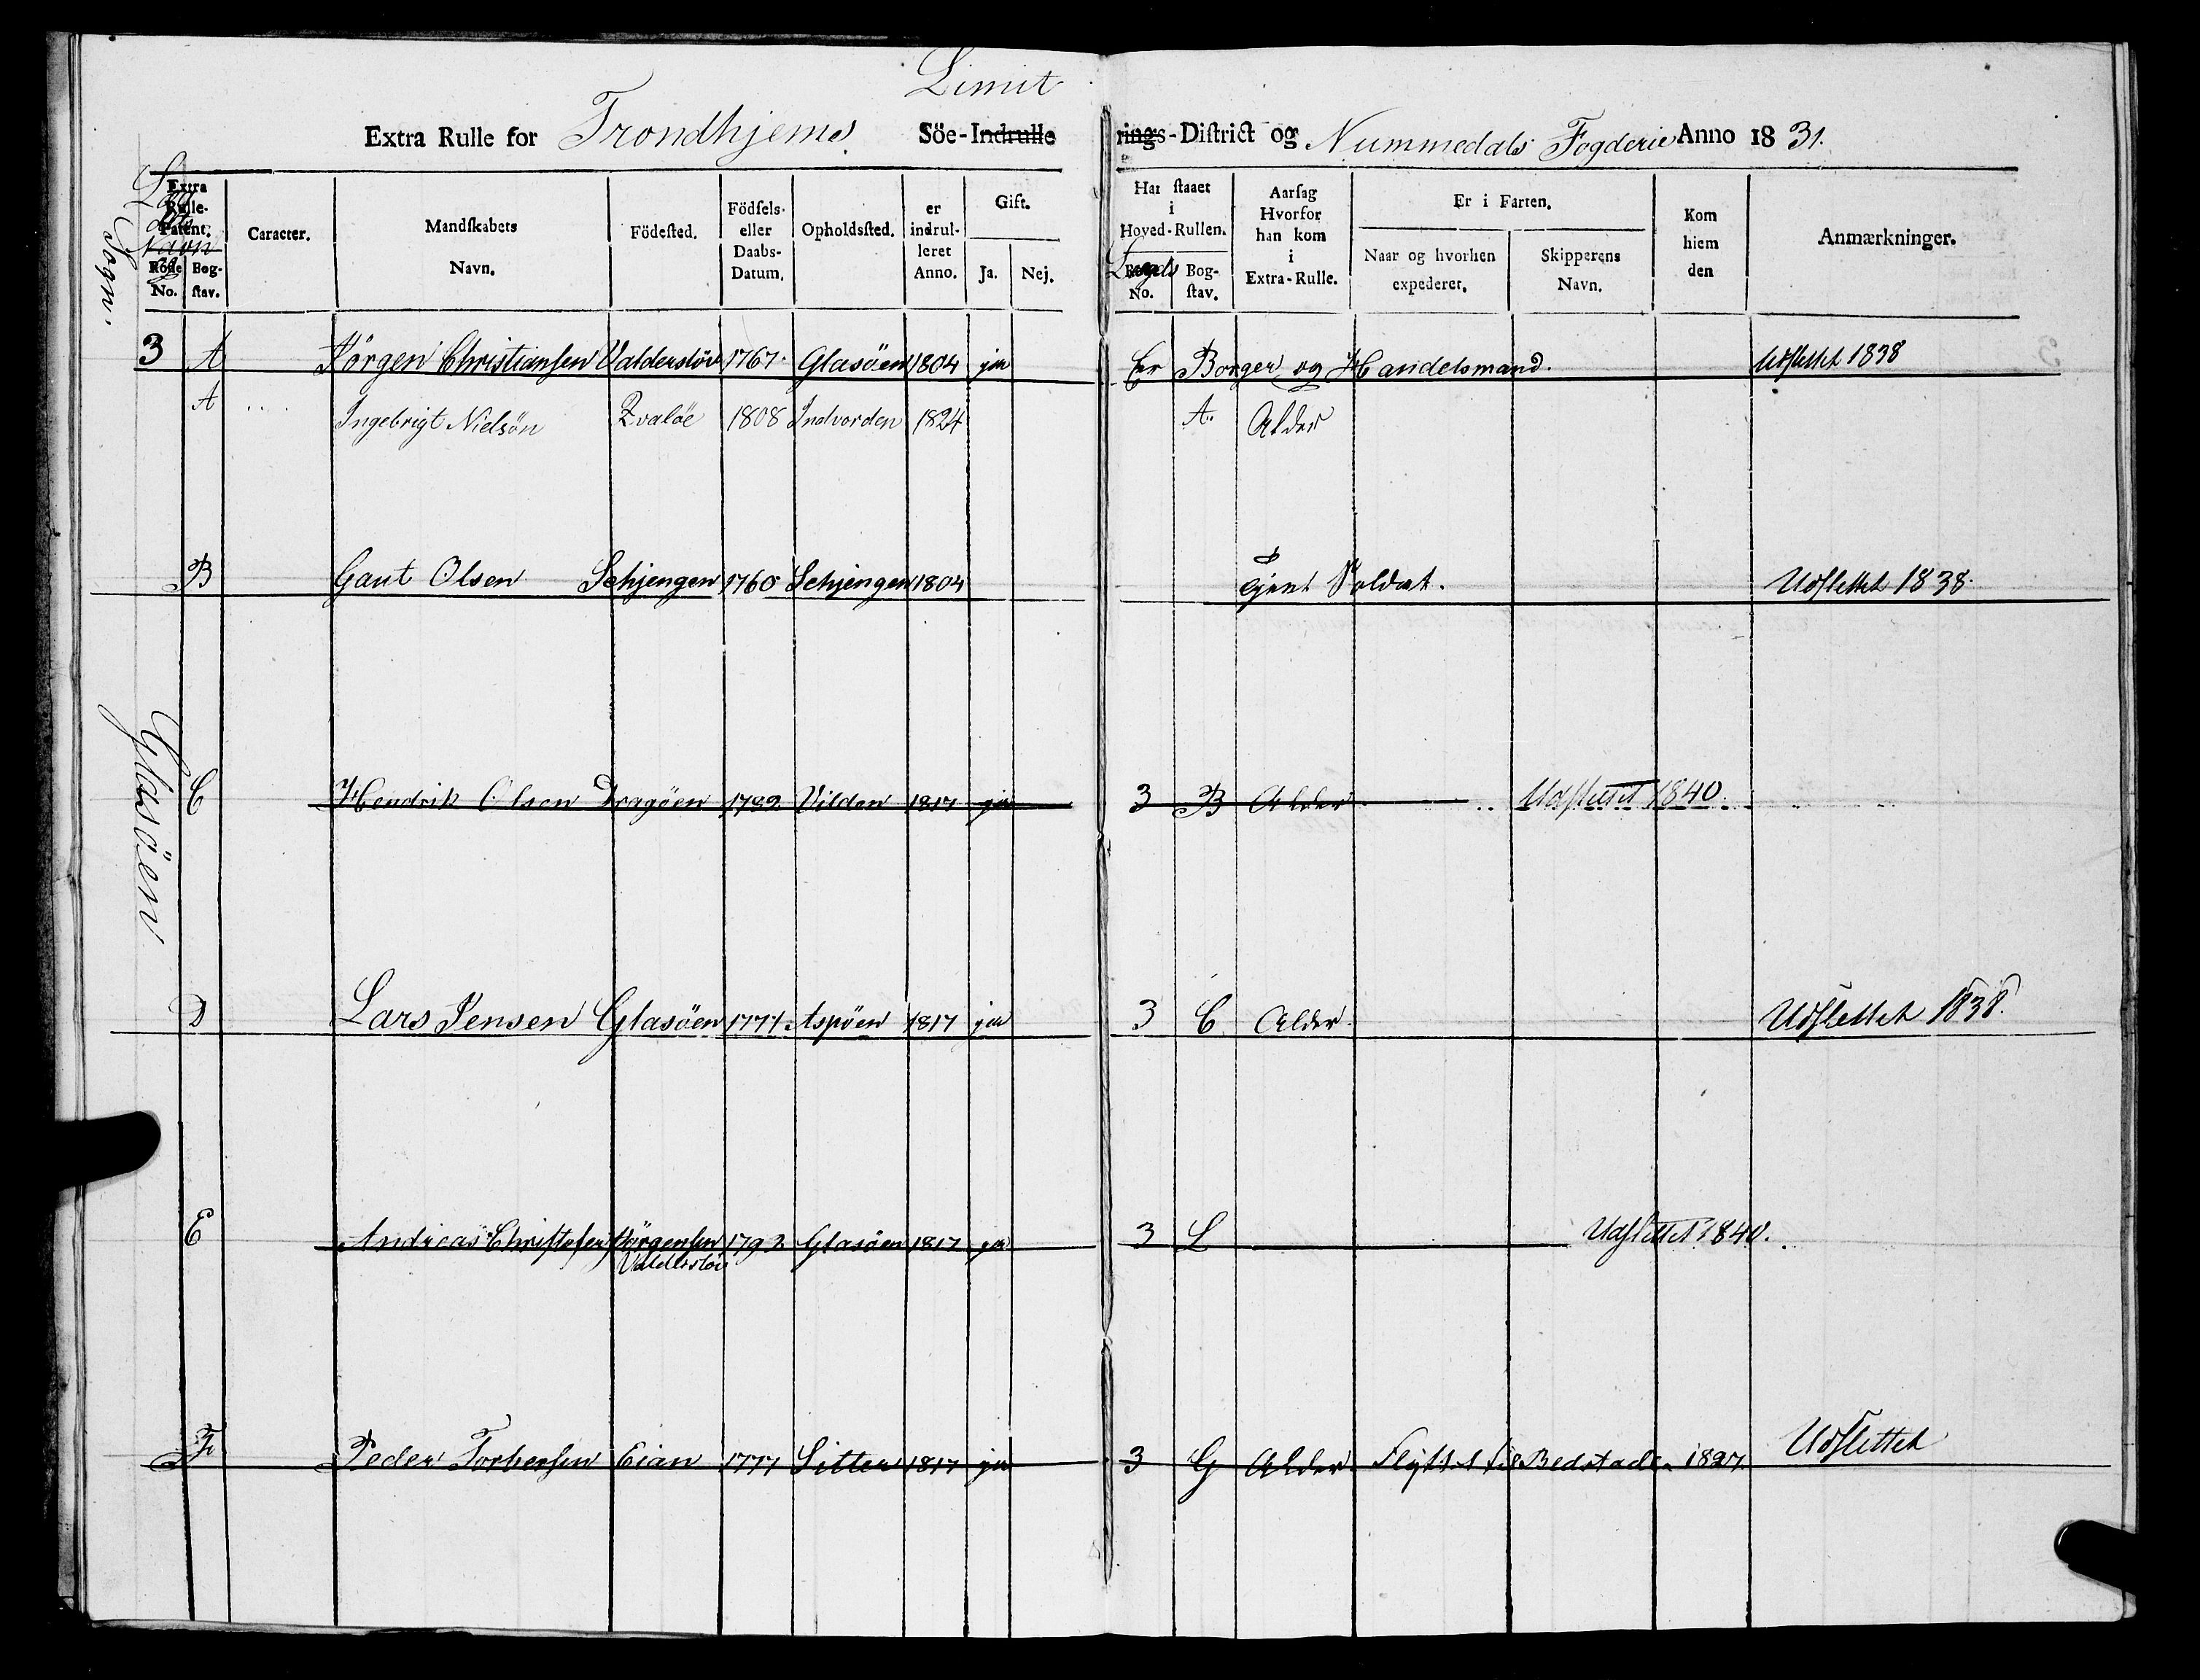 Limit
Extra Rulle for Trondhjems Söe-Indrullerings-District og Nummedals Fogderie Anno 1831.
Extra Rulle-Patent. Caracter. Mandskabets Navn. Födested. Födsels- eller Daabs-Datum. Opholdssted. er indrulleret Anno. Gift. Har staaet i Hoved-Rullen. Aarsag Hvorfor han kom i Extra-Rulle. Er i Farten. Kom hiem den Anmærkninger.
Rode No. Bogstav. Ja. Nej. Lægds No. Bogstav. Naar og hvorhen expederet. Skipperens Navn.
Navn
Sogn.
3 A Jörgen Christiansen Valderslöv 1767 Glasöen 1804 ja Er Borger og Handelsmand. Udslettet 1838
A Ingebrigt Nielsön Qvalöe 1808 Indvorden 1824 A. Alder
B Gaut Olsen Schjengen 1760 Schjengen 1804 Tjent Soldat. Udslettet 1838.
Glasöen
C Hendrik Olsen Dragöen 1782 Vilden 1817 ja 3 B Alder Udslettet 1840.
D Lars Jensen Glasöen 1771 Aspöen 1817 ja 3 C Alder. Udslettet 1838.
E Andreas Christofer Jörgensen 1792 Glasöen 1817 ja 3 L Udslettet 1840.
Valderslöv
F Peder Torbersen Eian 1771 Sitter 1817 ja 3 G Alder. Flyttet til Bedstaden 1827. Udslettet